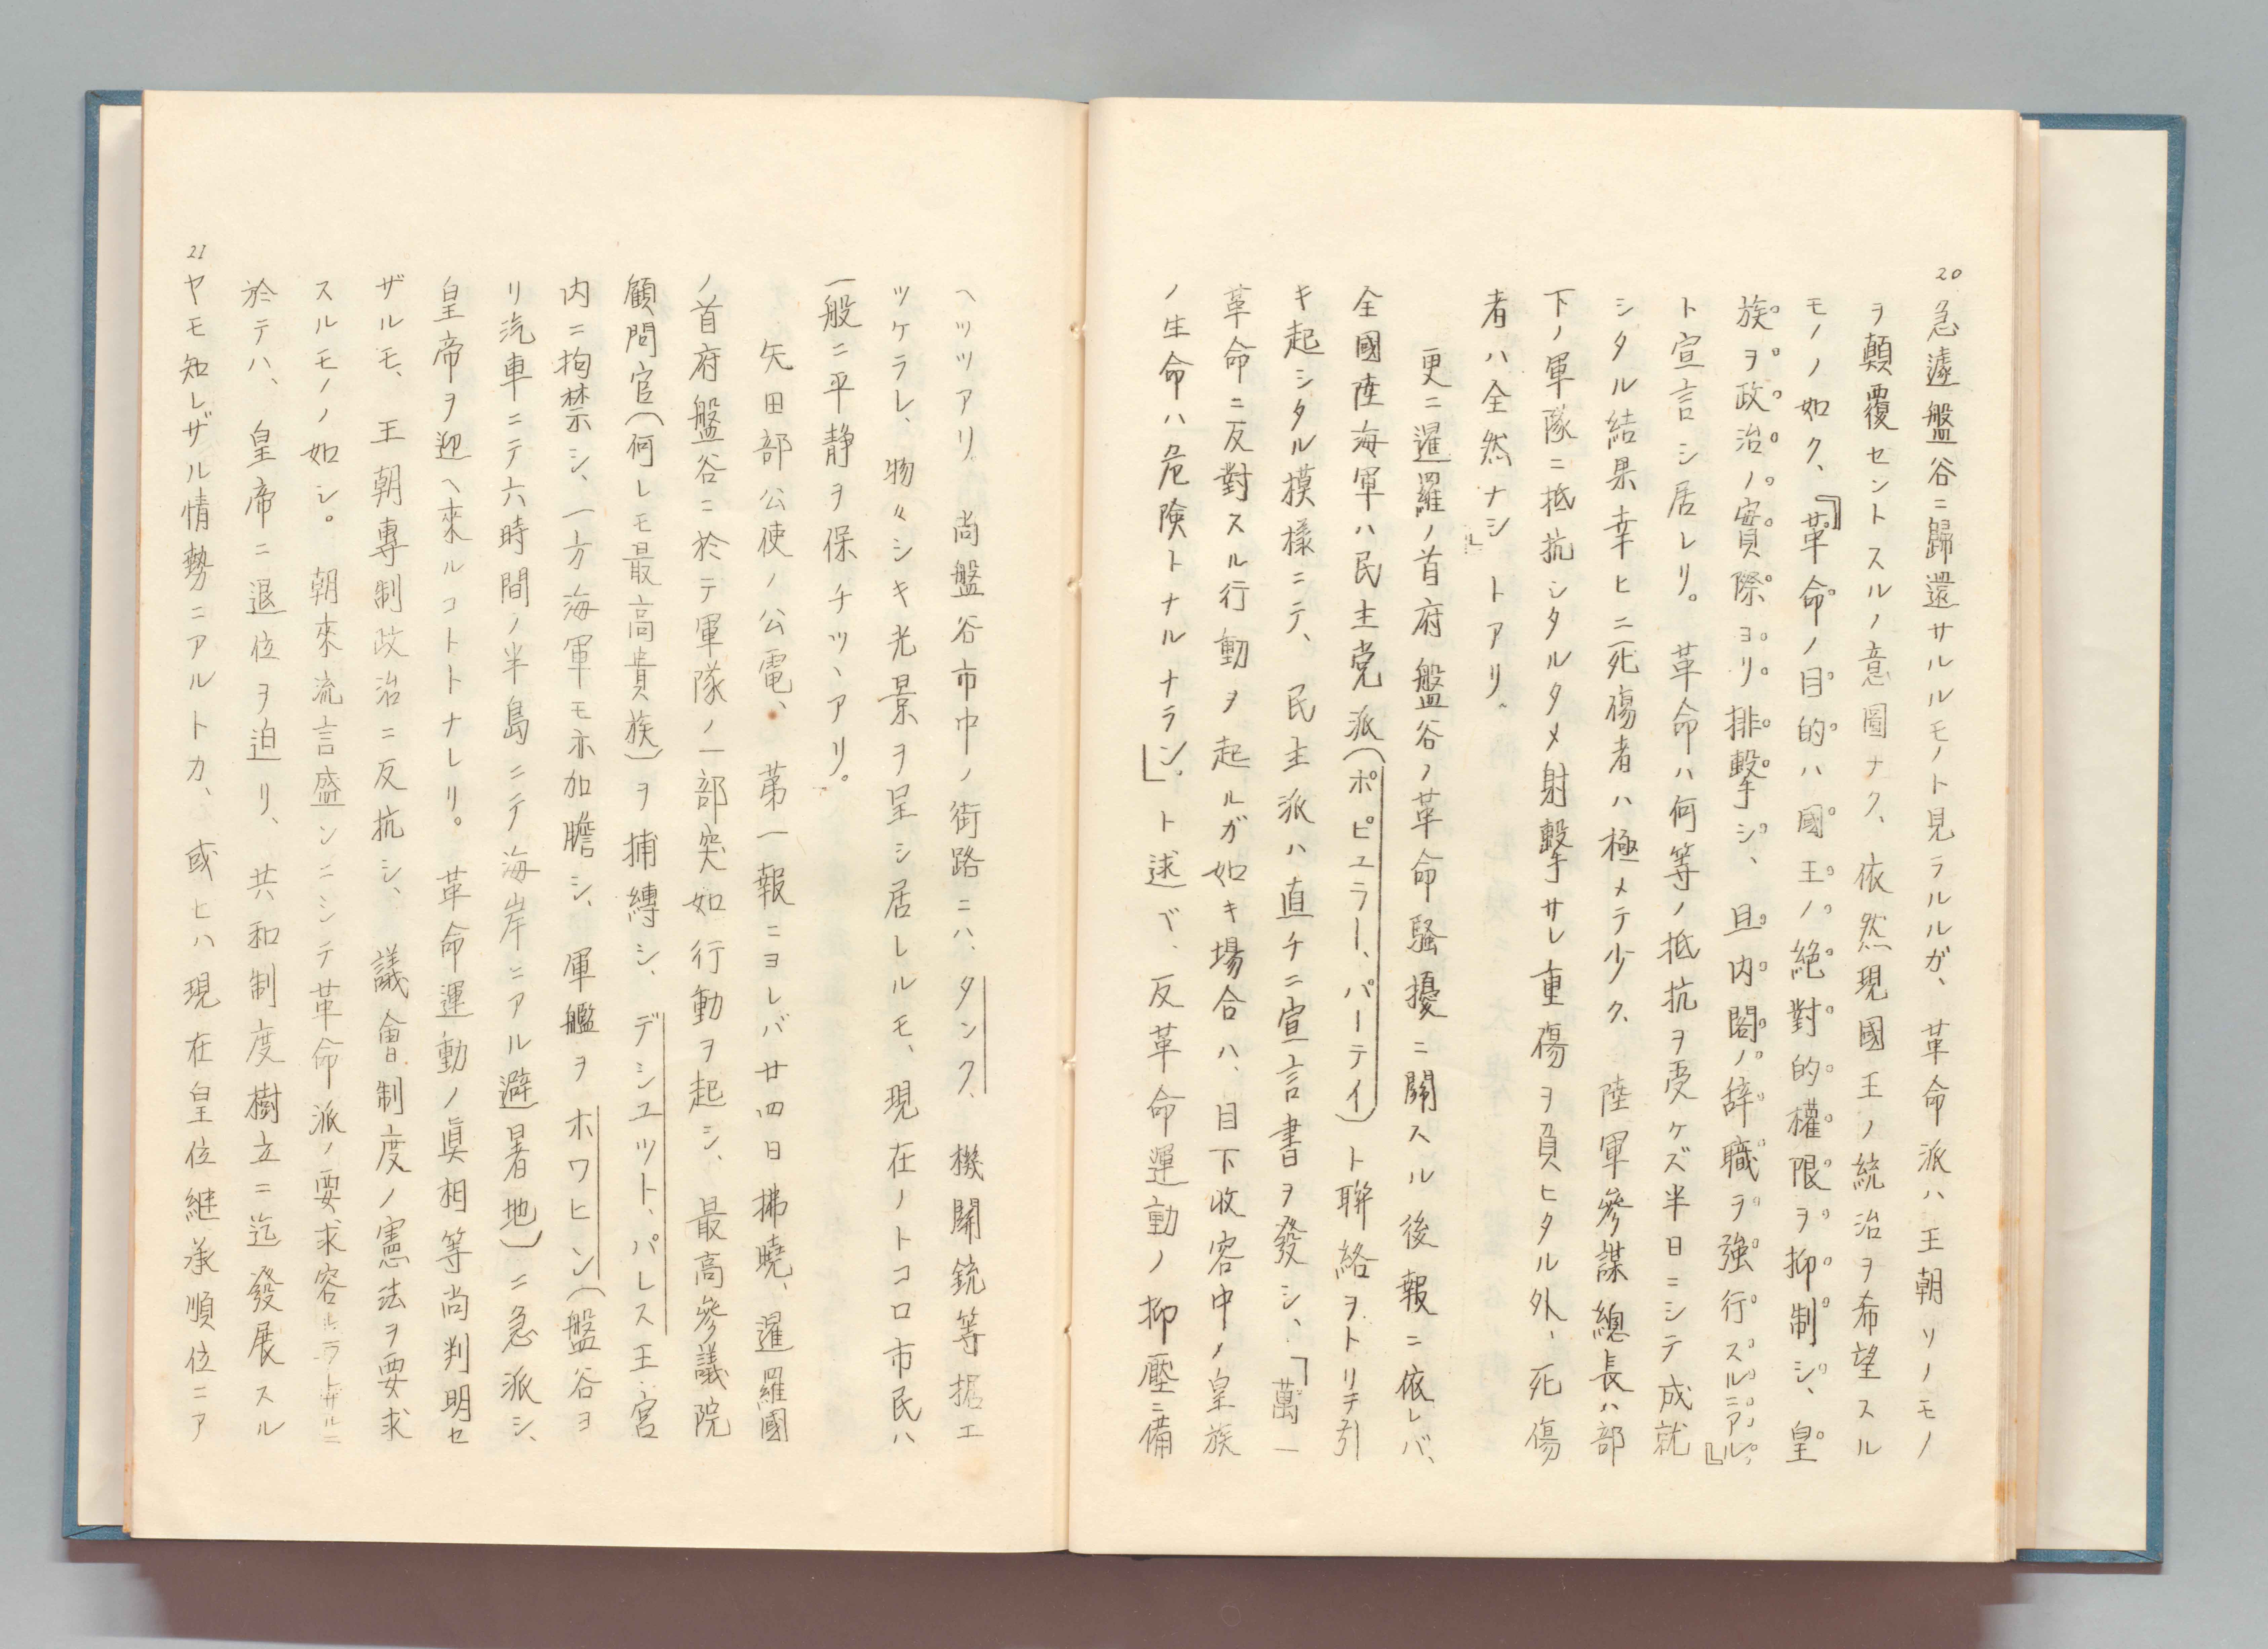 20
急遽盤谷ニ歸還サルルモノト見ラルルガ、革命派ハ王朝ソノモノ
ヲ顛覆セントスルノ意圖ナク、依然現國王ノ統治ヲ希望スル
モノノ如ク、『革命ノ目的ハ國王ノ絶對的權限ヲ抑制シ、皇
族ヲ政治ノ實際ヨリ排撃シ、且内閣ノ辞職ヲ強行スルニアル』
ト宣言シ居レリ。革命ハ何等ノ抵抗ヲ受ケズ半日ニシテ成就
シタル結果幸ヒニ死傷者ハ極メテ少ク、陸軍參謀總長ハ部
下ノ軍隊ニ抵抗シタルタメ射撃サレ重傷ヲ負ヒタル外、死傷
者ハ全然ナシ」トアリ、
更ニ暹羅ノ首府盤谷ノ革命騒擾ニ關スル後報ニ依レバ、
全國陸海軍ハ民主党派(ポピュラー、パーテイ)ト聯絡ヲトリテ引
キ起シタル模様ニテ、民主派ハ直チニ宣言書ヲ發シ、「萬一
革命ニ反對スル行動ヲ起ルガ如キ場合ハ、目下收容中ノ皇族
ノ生命ハ危険トナルナラン」、ト述ベ、反革命運動ノ抑壓ニ備
ヘツツアリ、尚盤谷市中ノ街路ニハ、タンク、機關銃等据エ
ツケラレ、物々シキ光景ヲ呈シ居レルモ、現在ノトコロ市民ハ
一般ニ平静ヲ保チツヽアリ。
矢田部公使ノ公電、第一報ニヨレバ廿四日拂曉、暹羅國
ノ首府盤谷ニ於テ軍隊ノ一部突如行動ヲ起シ、最高參議院
顧問官(何レモ最高貴族)ヲ捕縛シ、デシユツト、パレス王宮
内ニ拘禁シ、一方海軍モ亦加膽シ、軍艦ヲホワヒン(盤谷ヨ
リ汽車ニテ六時間ノ半島ニテ海岸ニアル避暑地)ニ急派シ、
皇帝ヲ迎ヘ來ルコトトナレリ。革命運動ノ眞相等尚判明セ
ザルモ、王朝專制政治ニ反抗シ、議會制度ノ憲法ヲ要求
スルモノノ如シ。朝來流言盛ンニシテ革命派ノ要求容レラレザルニ
於テハ、皇帝ニ退位ヲ迫リ、共和制度樹立ニ迄發展スル
21
ヤモ知レザル情勢ニアルトカ、或ヒハ現在皇位継承順位ニア